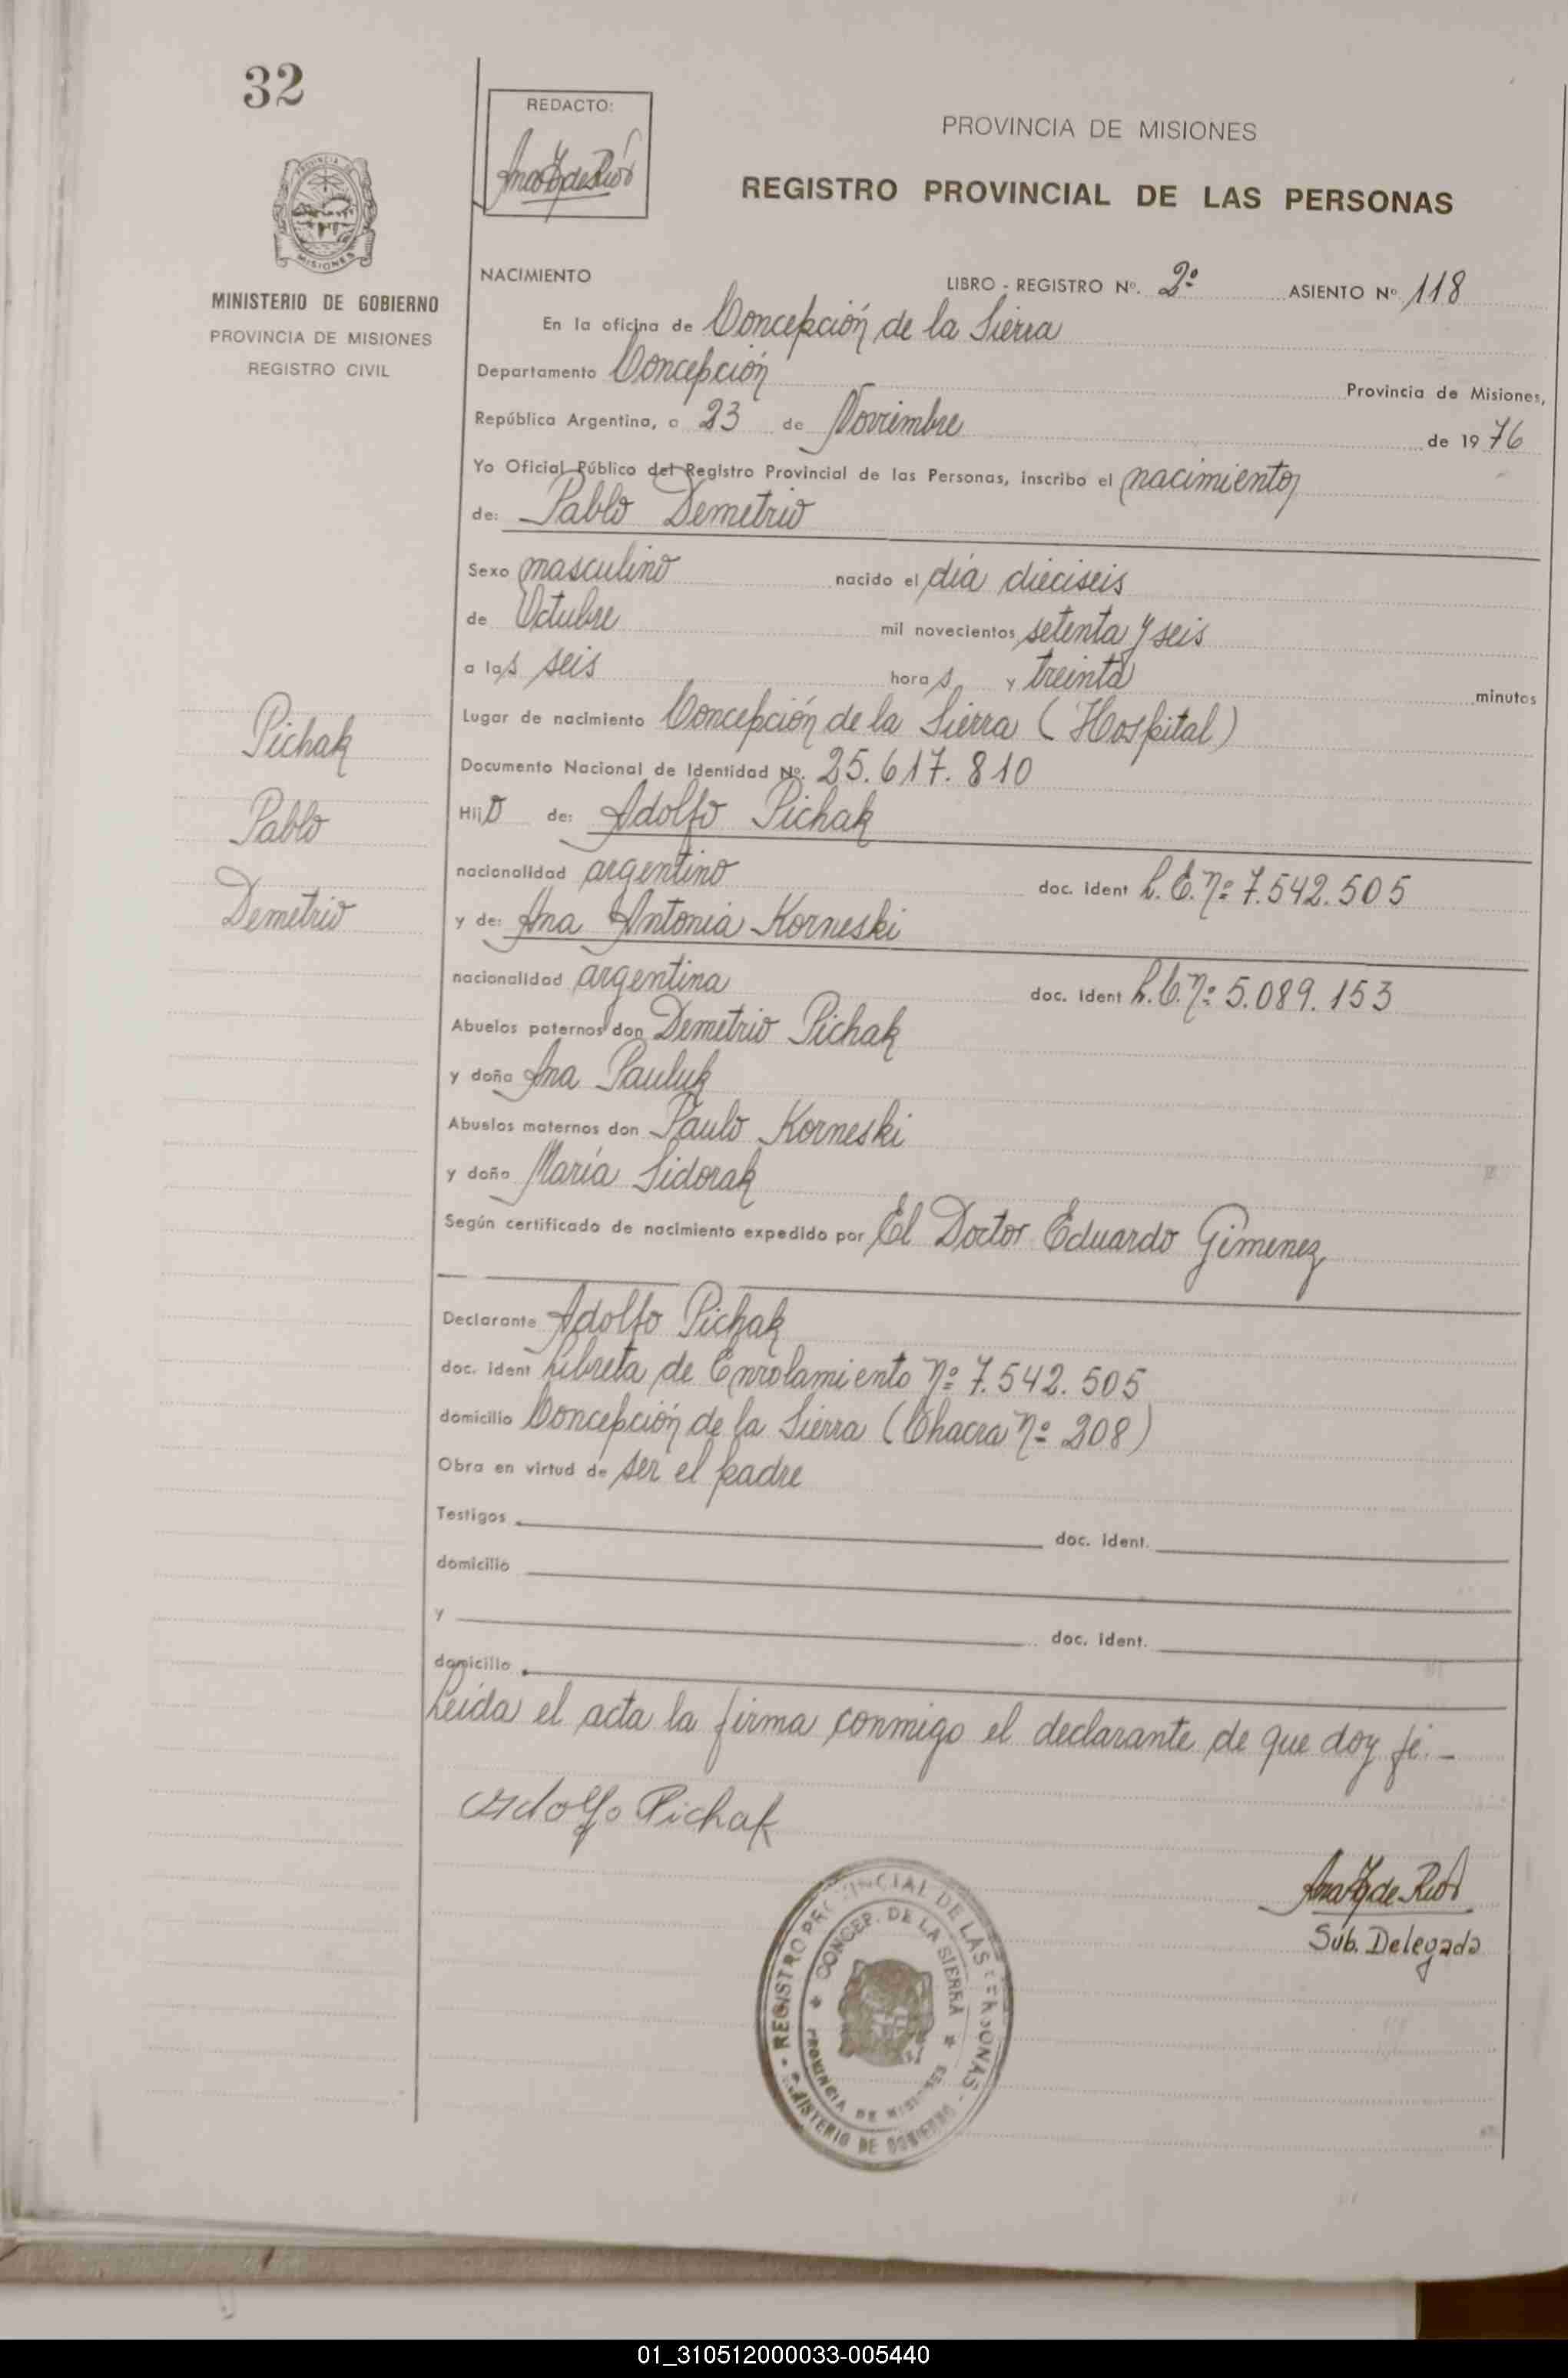 32
REDACTO:
PROVINCIA DE MISIONES
REGISTRO PROVINCIAL DE LAS PERSONAS
MINISTERIO DE GOBIERNO
PROVINCIA DE MISIONES
REGISTRO CIVIL
NACIMIENTO LIBRO - REGISTRO Nº. 2º ASIENTO Nº 118
En la oficina de Concepción de la Sierra
Departamento Concepción Provincia de Misiones,
República Argentina, a 23 de Noviembre de 1976
Yo Oficial Público del Registro Provincial de las Personas, inscribo el nacimiento
de: Pablo Demetrio
Sexo masculino nacido el día dieciseis
de Octubre mil novecientos setenta y seis
a las seis horas y treinta minutos
Lugar de nacimiento Concepción de la Sierra (Hospital)
Documento Nacional de Identidad Nº. 25.617.810
Hijo de: Adolfo Pichak
nacionalidad argentino doc. ident L.E. Nº 7.542.505
y de: Ana Antonia Korneski
nacionalidad argentina doc. ident L.C. Nº 5.089.153
Abuelos paternos don Demetrio Pichak
y doña Ana Pauluk
Abuelos maternos don Paulo Korneski
y doña María Sidorak
Según certificado de nacimiento expedido por El Doctor Eduardo Gimenez
Pichak
Pablo
Demetrio
Declarante Adolfo Pichak
doc. ident Libreta de Enrolamiento Nº 7.542.505
domicilio Concepción de la Sierra (Chacra Nº 208)
Obra en virtud de ser el padre
Testigos doc. ident.
domicilio
y doc. ident.
domicilio
Leída el acta la firma conmigo el declarante de que doy fé.-
Adolfo Pichak
Sub. Delegada
REGISTRO PROVINCIAL DE LAS PERSONAS
CONCEP. DE LA SIERRA
PROVINCIA DE MISIONES
MINISTERIO DE GOBIERNO
01_310512000033-005440